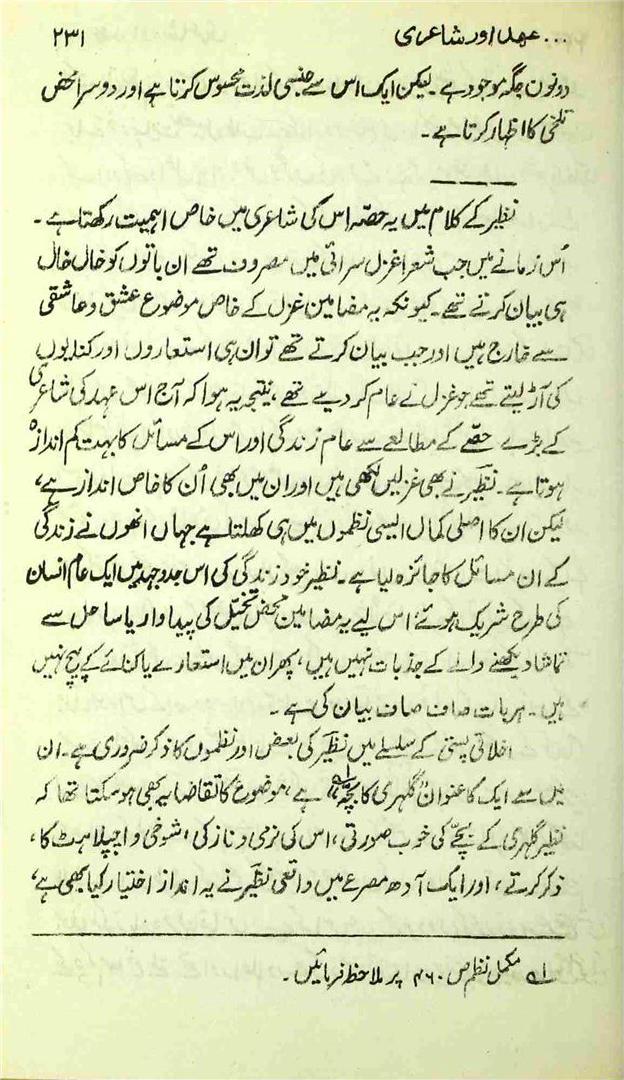 ... عہد اور شاعری ۲۳۱
دونوں جگہ موجود ہے۔ لیکن ایک اس سے جنسی لذت محسوس کرتا ہے اور دوسرا محض
تلخی کا اظہار کرتا ہے۔
نظیر کے کلام میں یہ حصّہ اس کی شاعری میں خاص اہمیت رکھتا ہے۔
اُس زمانے میں جب شعرا غزل سرائی میں مصروف تھے ان باتوں کو خال خال
ہی بیان کرتے تھے۔ کیونکہ یہ مضامین غزل کے خاص موضوع عشق و عاشقی
سے خارج ہیں اور جب بیان کرتے تھے تو ان ہی استعاروں اور کنایوں
کی آڑ لیتے تھے جو غزل نے عام کر دیے تھے، نتیجہ یہ ہوا کہ آج اس عہد کی شاعری
کے بڑے حصّے کے مطالعے سے عام زندگی اور اس کے مسائل کا بہت کم اندازہ
ہوتا ہے۔ نظیرؔ نے بھی غزلیں لکھی ہیں اور ان میں بھی اُن کا خاص انداز ہے،
لیکن ان کا اصلی کمال ایسی نظموں میں ہی کھلتا ہے جہاں انھوں نے زندگی
کے ان مسائل کا جائزہ لیا ہے۔ نظیر خود زندگی کی اس جدوجہد میں ایک عام انسان
کی طرح شریک ہوئے، اس لیے یہ مضامین محض تخیّل کی پیداوار یا ساحل سے
تماشا دیکھنے والے کے جذبات نہیں ہیں، پھر ان میں استعارے یا کنائے کے پیچ نہیں
ہیں۔ ہر بات صاف صاف بیان کی ہے۔
اخلاقی پستی کے سلسلے میں نظیرؔ کی بعض اور نظموں کا ذکر ضروری ہے۔ ان
میں سے ایک کا عنوان "گلہری کا بچّہ" ۱؎ ہے، موضوع کا تقاضا یہ بھی ہو سکتا تھا کہ
نظیر گلہری کے بچّے کی خوب صورتی، اس کی نرمی و نازکی، شوخی و اچپلاہٹ کا،
ذکر کرتے، اور ایک آدھ مصرعے میں واقعی نظیرؔ نے یہ انداز اختیار کیا بھی ہے،
۱؎ مکمل نظم ص ۴۶۰ پر ملاحظہ فرمائیں۔